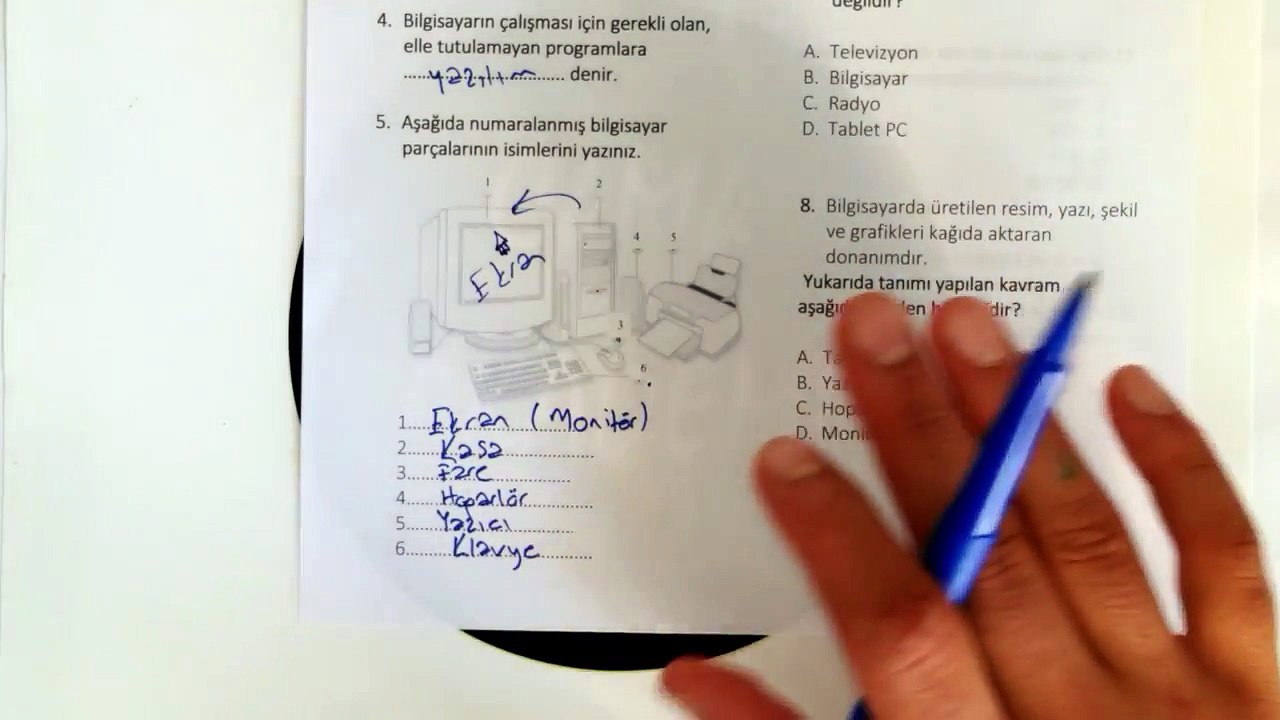 4. Bilgisayarın çalışması için gerekli olan,
elle tutulamayan programlara
......yazılım...... denir.
5. Aşağıda numaralanmış bilgisayar
parçalarının isimlerini yazınız.
1
2
4
5
Ekran
3
6
1....Ekran (Monitör)
2......Kasa................
3......Fare................
4......Hoparlör...........
5......Yazıcı..............
6.........Klavye...........
A. Televizyon
B. Bilgisayar
C. Radyo
D. Tablet PC
8. Bilgisayarda üretilen resim, yazı, şekil
ve grafikleri kağıda aktaran
donanımdır.
Yukarıda tanımı yapılan kavram
A.
B.
C.
D.